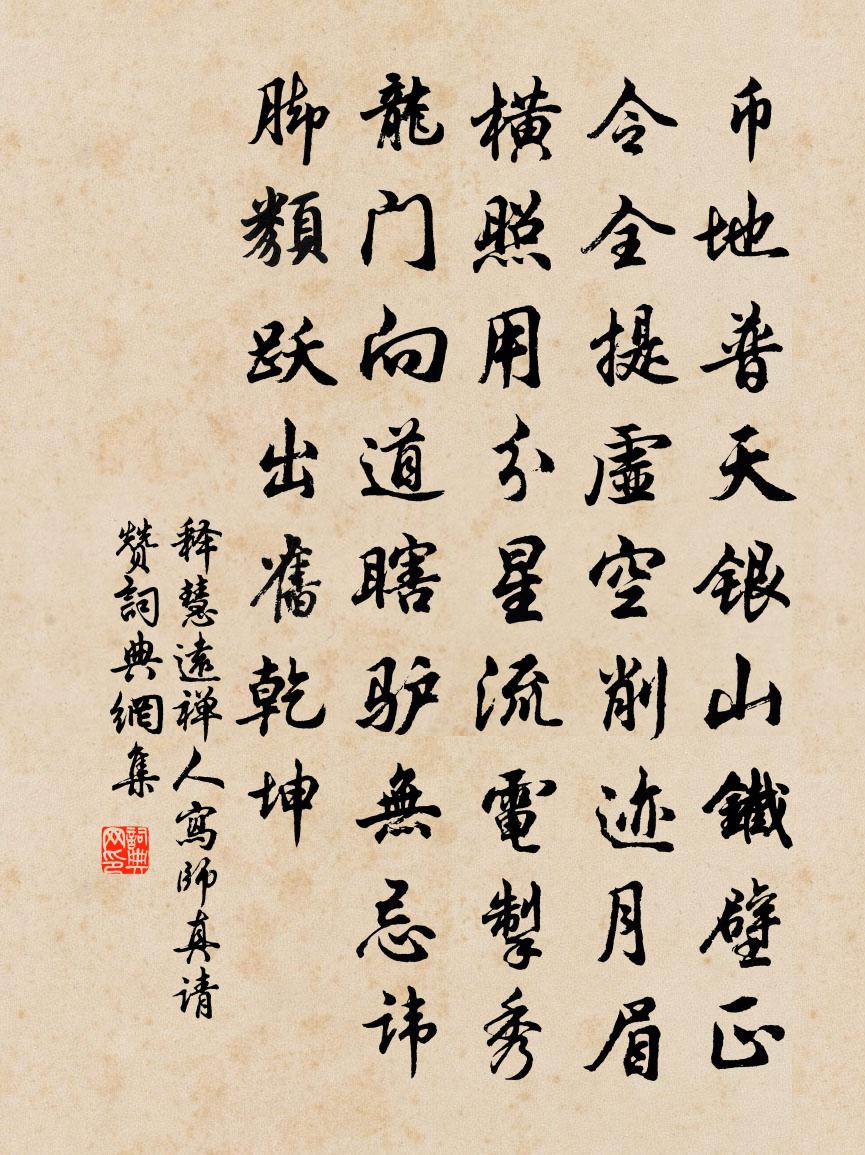 币地普天银山鐵壁正
令全提虛空削迹月眉
橫照用分星流電掣秀
龍门向道瞎驴無忌讳
脚類跃出舊乾坤
释慧遠禅人寫師真请
赞詞典網集
詞典网印